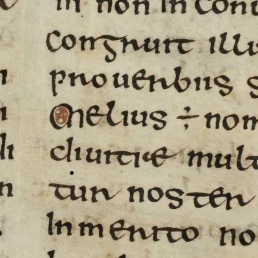 in non in con
congruit illi
prouerbiis s
Melius ÷ nom
diuitie mult
tur noster
Inmerito no